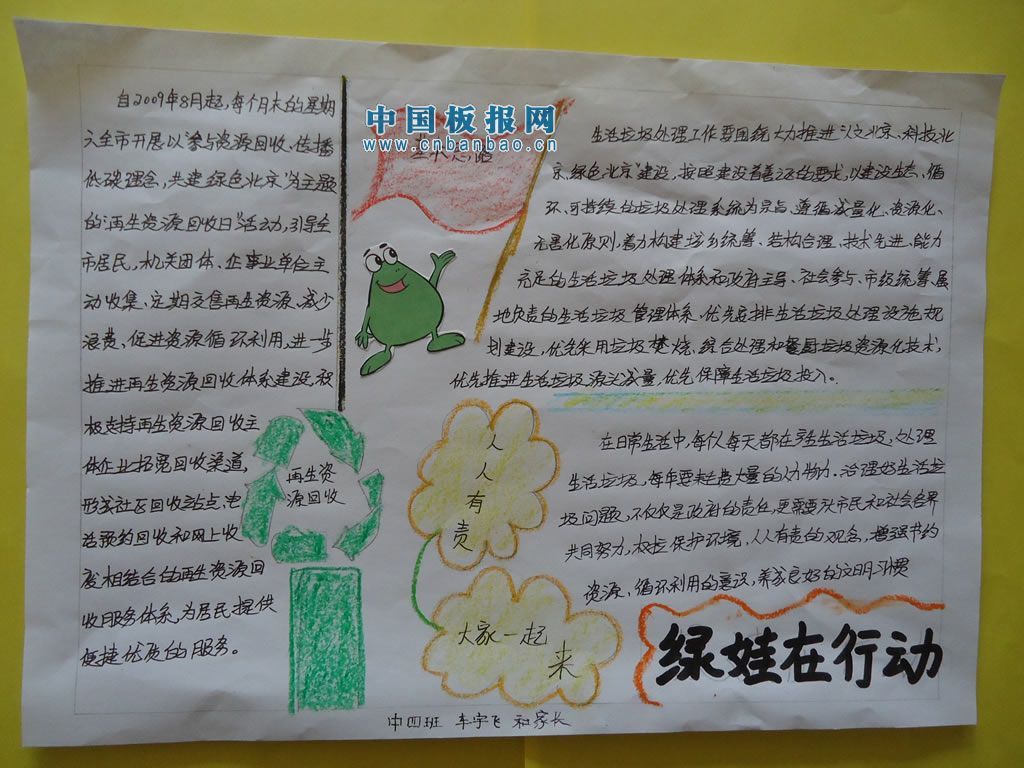 自2009年8月起,每个月末的星期
六全市开展以"参与资源回收、传播
低碳理念,共建绿色北京"为主题
的"再生资源回收日"活动,引导全
市居民,机关团体、企事业单位主
动收集、定期交售再生资源、减少
浪费、促进资源循环利用,进一步
推进再生资源回收体系建设,积
极支持再生资源回收主
体企业拓宽回收渠道,
形成社区回收站点、电
话预约回收和网上收
废相结合的再生资源回
收服务体系,为居民提供
便捷优质的服务。
中国板报网
www.cnbanbao.cn
生活垃圾处理工作要围绕大力推进"人文北京、科技北
京、绿色北京"建设,按照建设首善之区的要求,以建设生态、循
环、可持续的垃圾处理系统为宗旨,遵循减量化、资源化、
无害化原则,着力构建城乡统筹、结构合理、技术先进、能力
充足的生活垃圾处理体系和政府主导、社会参与、市级统筹、属
地负责的生活垃圾管理体系,优先安排生活垃圾处理设施规
划建设,优先采用垃圾焚烧、综合处理和餐厨垃圾资源化技术,
优先推进生活垃圾源头减量,优先保障生活垃圾投入。
再生资
源回收
人
人
有
责
大家一起
来
在日常生活中,每人每天都在产生生活垃圾,处理
生活垃圾,每年要耗费大量的人力物力。治理好生活垃
圾问题,不仅仅是政府的责任,更需要市民和社会各界
共同努力,树立保护环境,人人有责的观念,增强节约
资源、循环利用的意识,养成良好的文明习惯
绿娃在行动
中四班 车宇飞 和家长